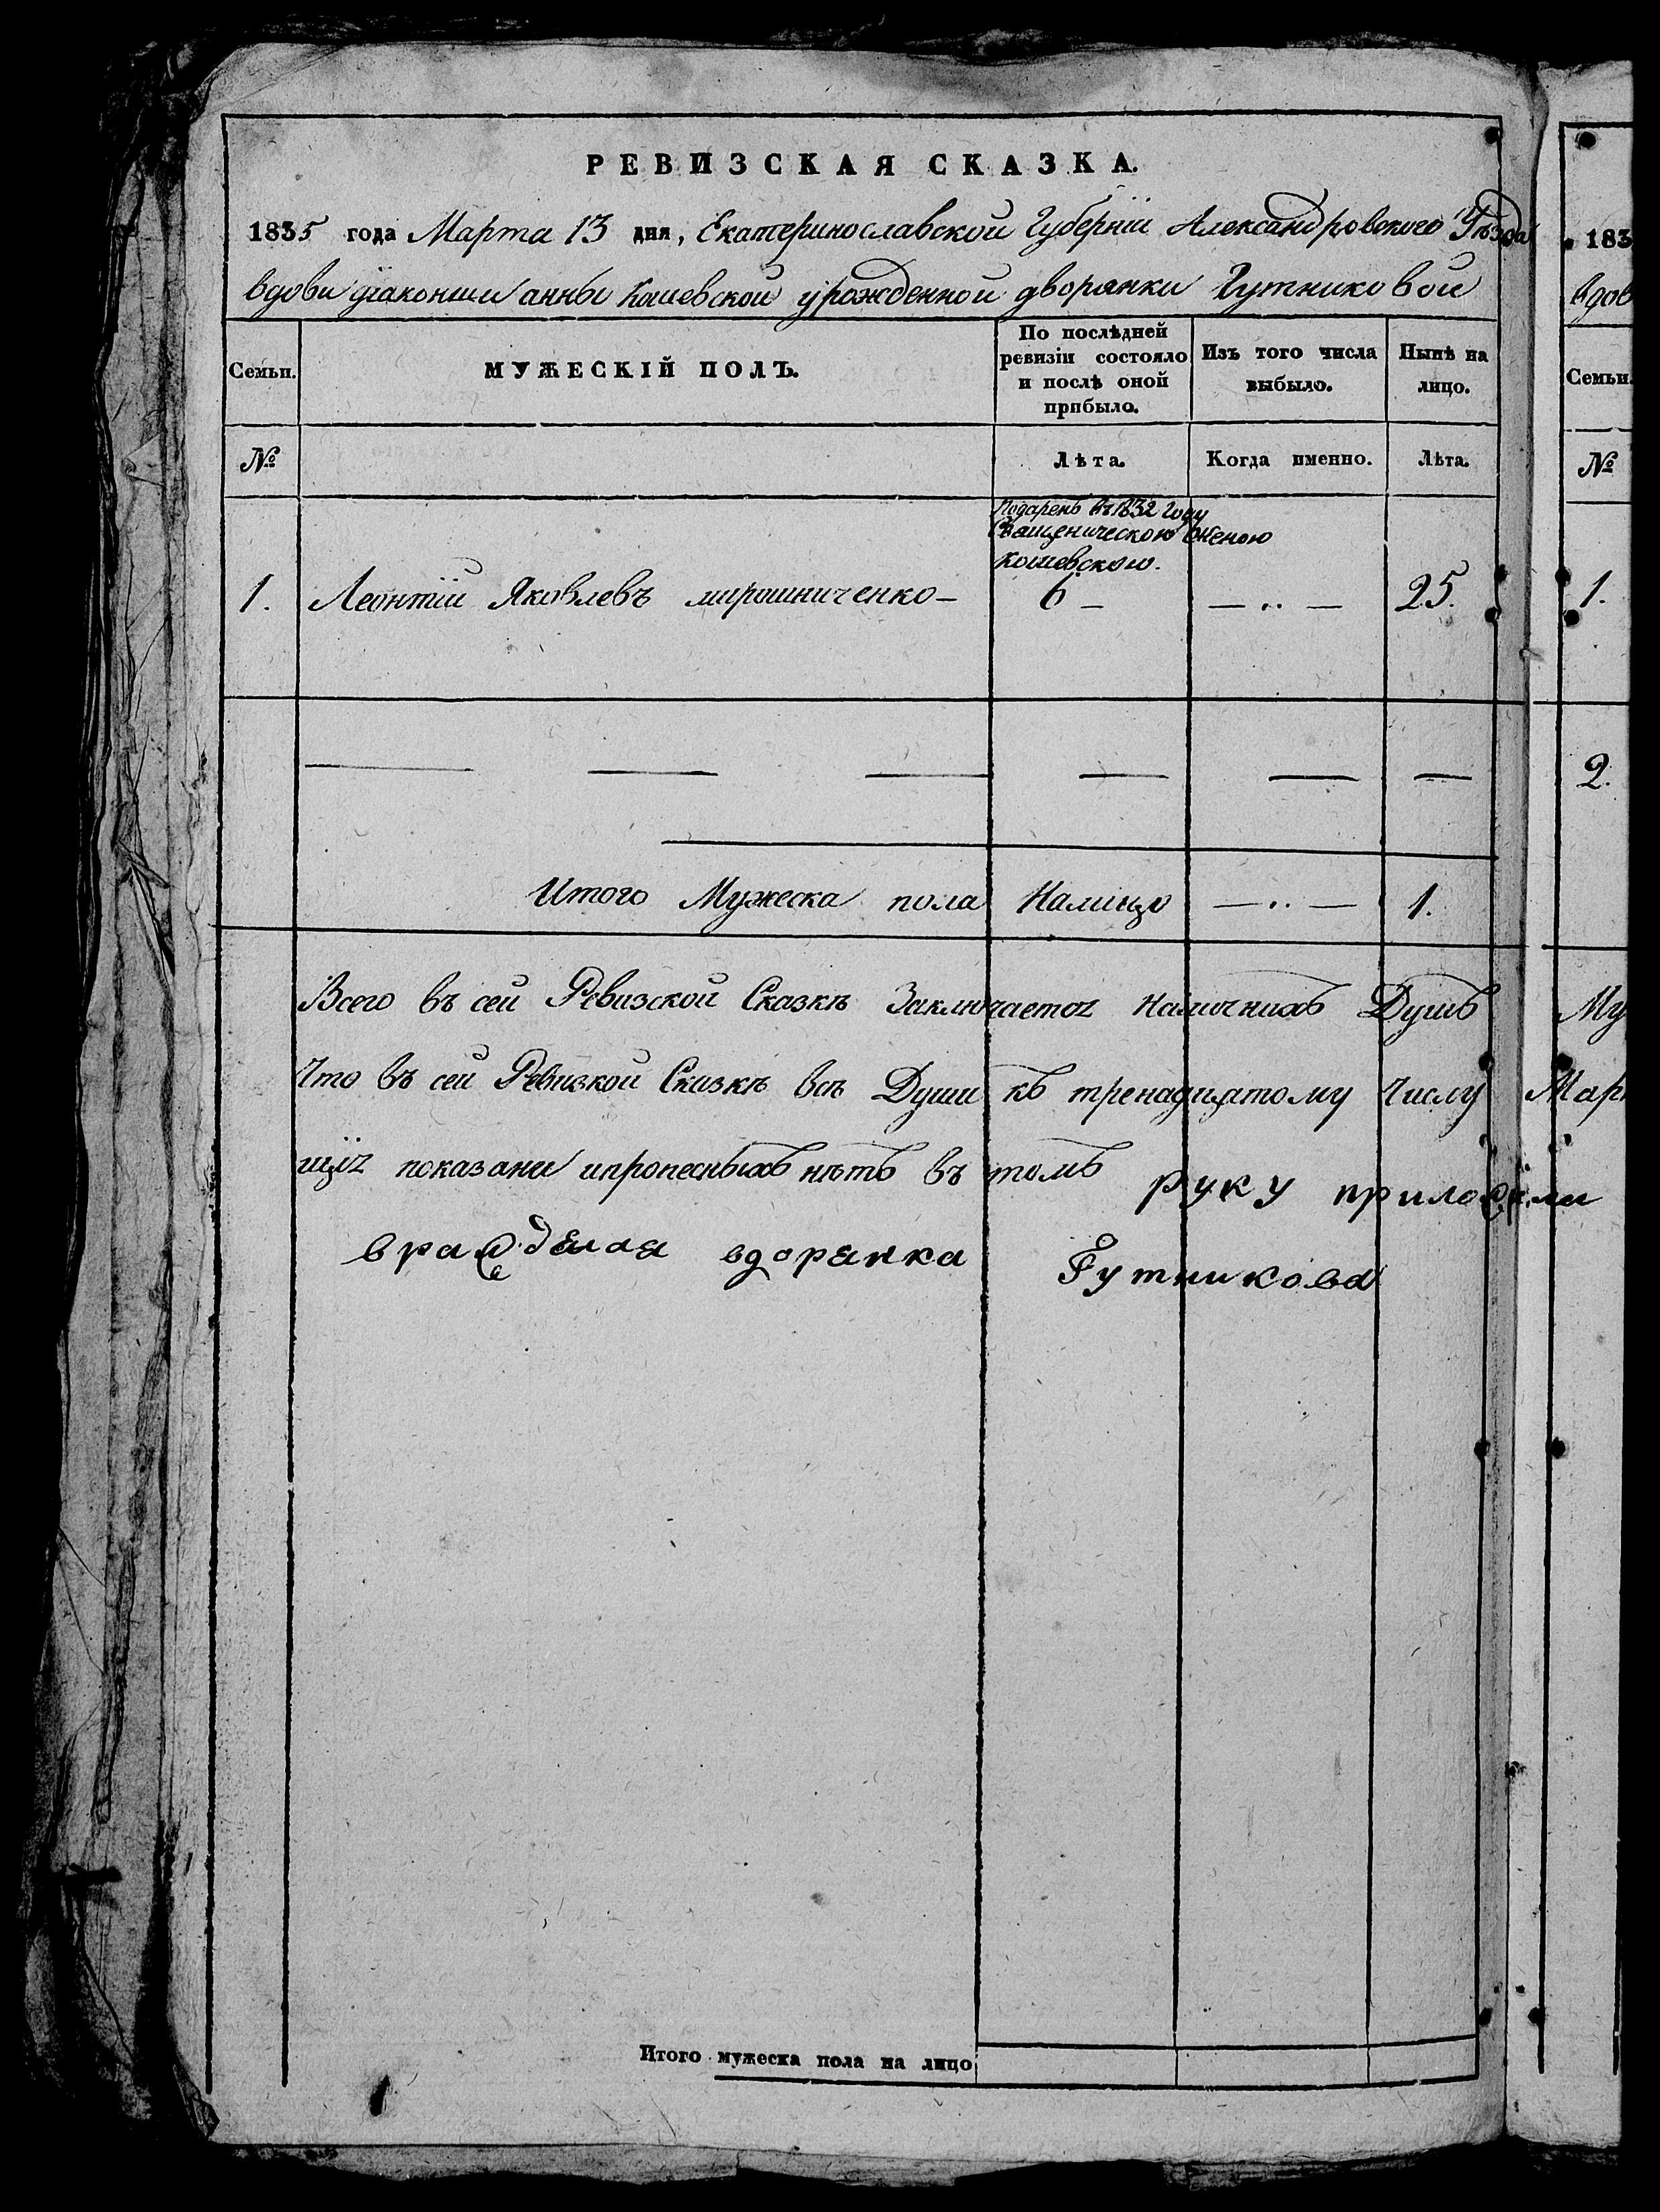 РЕВИЗСКАЯ СКАЗКА.
1835 года Марта 13 дня, Екатеринославской Губерніи Александровского Уѣзда
вдови діаконши анны Кошевской урожденной дворянки Гутниковой
Семьи. МУЖЕСКІЙ ПОЛЪ. По послѣдней ревизіи состояло и послѣ оной прибыло. Изъ того числа выбыло. Нынѣ на лицо.
№ Лѣта. Когда именно. Лѣта.
Подаренъ въ 1832 году
Священическою женою
Кошевскою.
1. Леонтій Яковлевъ мирошниченко 6 — — „ — 25.
Итого Мужеска пола Налицо — „ — 1.
Всего въ сей Ревизской Сказкѣ Заключается Наличнихъ Душъ
Что въ сей Ревизкой Сказкѣ всѣ Души къ тренадцятому Числу
показани ипропесныхъ нѣтъ въ томъ руку приложила
вдорянка Гутникова
Итого мужеска пола на лицо
183
вдов
Семьи.
№
1.
2.
Му
Мар